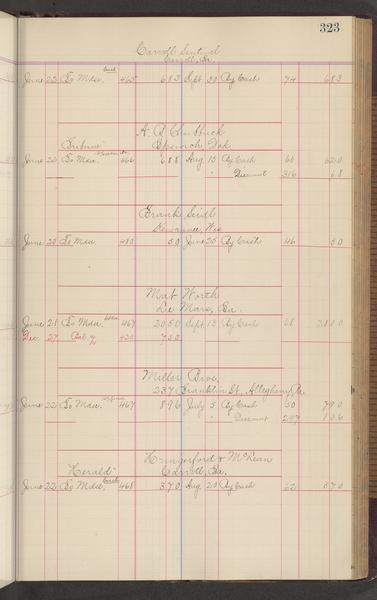 323
Carroll Sentinel
Carroll, Ia.
June 23 To Mdse. 465 683 Sept 30 By Cash 74 683
A. S. Chubbuck
"Tribune" Ipswich, Dak
June 20 To Mdse. 466 688 Aug 15 By Cash 60 620
" Discount 316 68
Frank Seidl
Kewaunee, Wis
June 20 To Mdse. 480 50 June 25 By Cash 46 50
Mat Worth
Le Mars, Ia.
June 21 To Mdse. 467 2050 Sept. 13 By Cash 68
Dec. 27 Bal % 420 752
Miller Bros.
237 Franklin St., Allegheny, Pa.
June 22 To Mdse. 467 896 July 5 By Cash 50 790
" Discount 297 106
Hungerford & McLean
"Herald" Carroll, Ia.
June 22 To Mdse. 468 370 Aug 20 By Cash 62 370